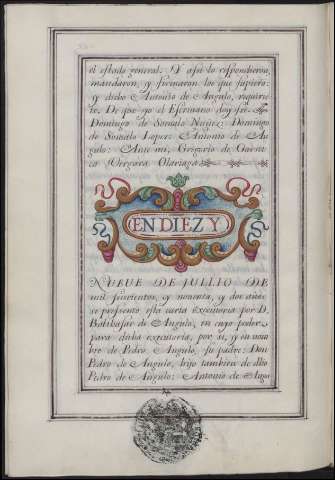 el estado general. Y assi lo respondieron,
mandaron, y firmaron los que supiero:
y dicho Antonio de Angulo, requiren
te. De que yo el Escrivano doy fee.
Domingo de Somalo Najera: Domingo
de Somalo Lopez: Antonio de An
gulo: Ante mi, Gregorio de
Vergara Olariaga
EN DIEZ Y
NUEUE DE JULLIO DE
mil seiscientos, y noventa, y dos años
se presento esta carta executoria por D.
Balthasar de Angulo, en cuyo poder
para dicha executoria, por si, y en nom
bre de Pedro Angulo, su padre: Don
Pedro de Angulo, hijo tambien de dho
Pedro de Angulo: Antonio de Angu